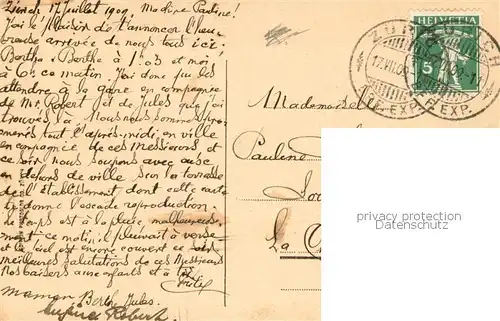 Zürich 17 Juillet 1909 Ma chère Pauline!
J'ai le plaisir de t'annoncer l'heu-
reuse arrivée de nous tous ici:
Berthe & Berthe à 1.03 et moi
à 6h. ce matin. J'ai donc pu les
attendre à la Gare en compagnie
de Mr. Robert et de Jules que j'ai
trouvés là. Nous nous sommes pro-
menés tout l'après-midi en ville
en compagnie de ces Messieurs et
ce soir nous soupons avec eux
en dehors de ville sur la terrasse
de l'Etablissement dont cette carte
te donne l'exacte reproduction.
Le temps est à la pluie malheureuse-
ment ce matin il pleuvait à verse
et le ciel est encore couvert ce soir
meilleures salutations de ces Messieurs
Nos baisers aux enfants et à toi
Maman Berthe Jules.
Robert
Mademoiselle
Pauline
La
ZÜRICH
17.VII.09
BRF. EXP.
5
HELVETIA
PROTECTION DES DROITS